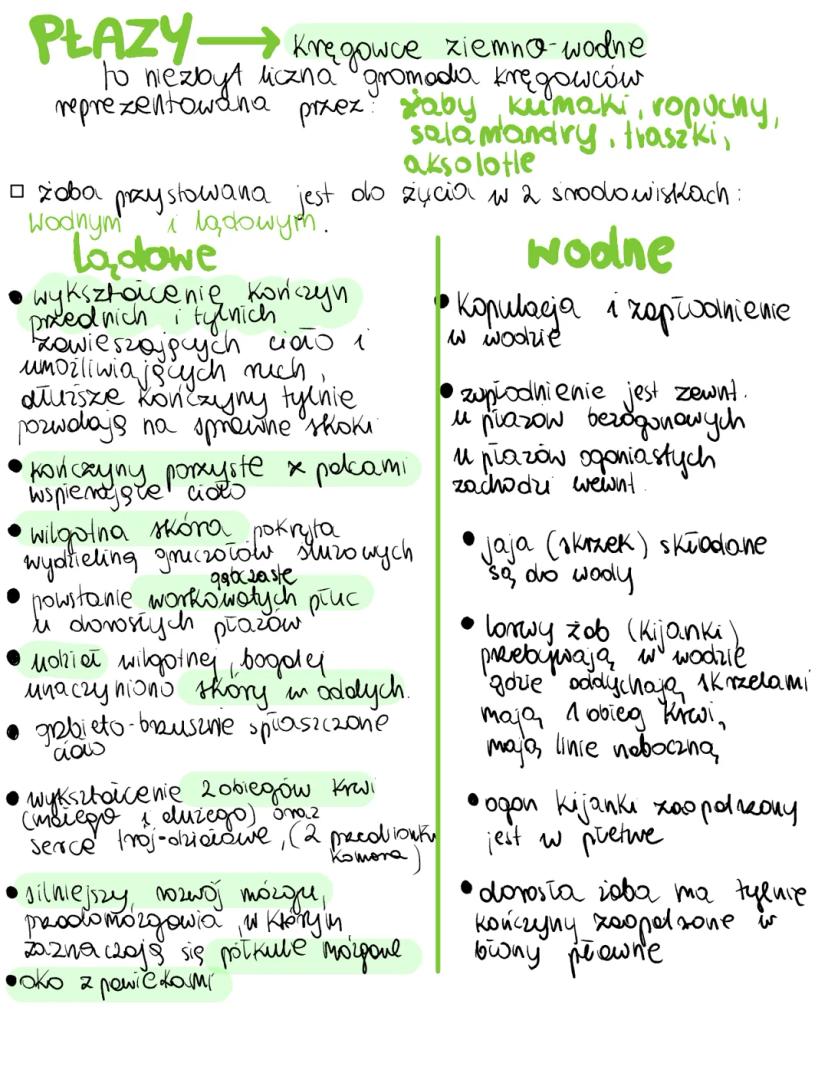 PŁAZY → kręgowce ziemno-wodne
to niezbyt liczna gromada kręgowców
reprezentowana przez: żaby kumaki, ropuchy,
salamandry, traszki,
aksolotle
żaba przystowana jest do życia w 2 środowiskach:
wodnym i lądowym.
lądowe
• wykształcenie kończyn
przednich i tylnich
zawieszających ciało i
umożliwiających ruch,
dłuższe kończyny tylnie
pozwalają na sprawne skoki
• kończyny parzyste z palcami
wspierające ciało
• wilgotna skóra pokryta
wydzieliną gruczołów śluzowych
gąbczaste
• powstanie workowatych płuc
u dorosłych płazów
• udział wilgotnej, bogatej
unaczyniono skóry w oddych.
• grzbieto-brzusznie spłaszczone
ciało
• wykształcenie 2 obiegów krwi
(małego i dużego) oraz
serce trój-działowe, (2 przedsionki
komora)
• silniejszy rozwój mózgu,
przodomózgowia, w którym
zaznaczają się półkule mózgowe
• oko z powiekami
wodne
• kopulacja i zapłodnienie
w wodzie
• zapłodnienie jest zewnt.
u płazów bezogonowych
u płazów ogoniastych
zachodzi wewnt.
• jaja (skrzek) składane
są do wody
• larwy żab (kijanki)
przebywają w wodzie
gdzie oddychają skrzelami
mają 1 obieg krwi,
mają linie naboczną
• ogon kijanki zaopatrzony
jest w płetwe
• dorosła żaba ma tylnie
kończyny zaopatrzone w
błony pławne